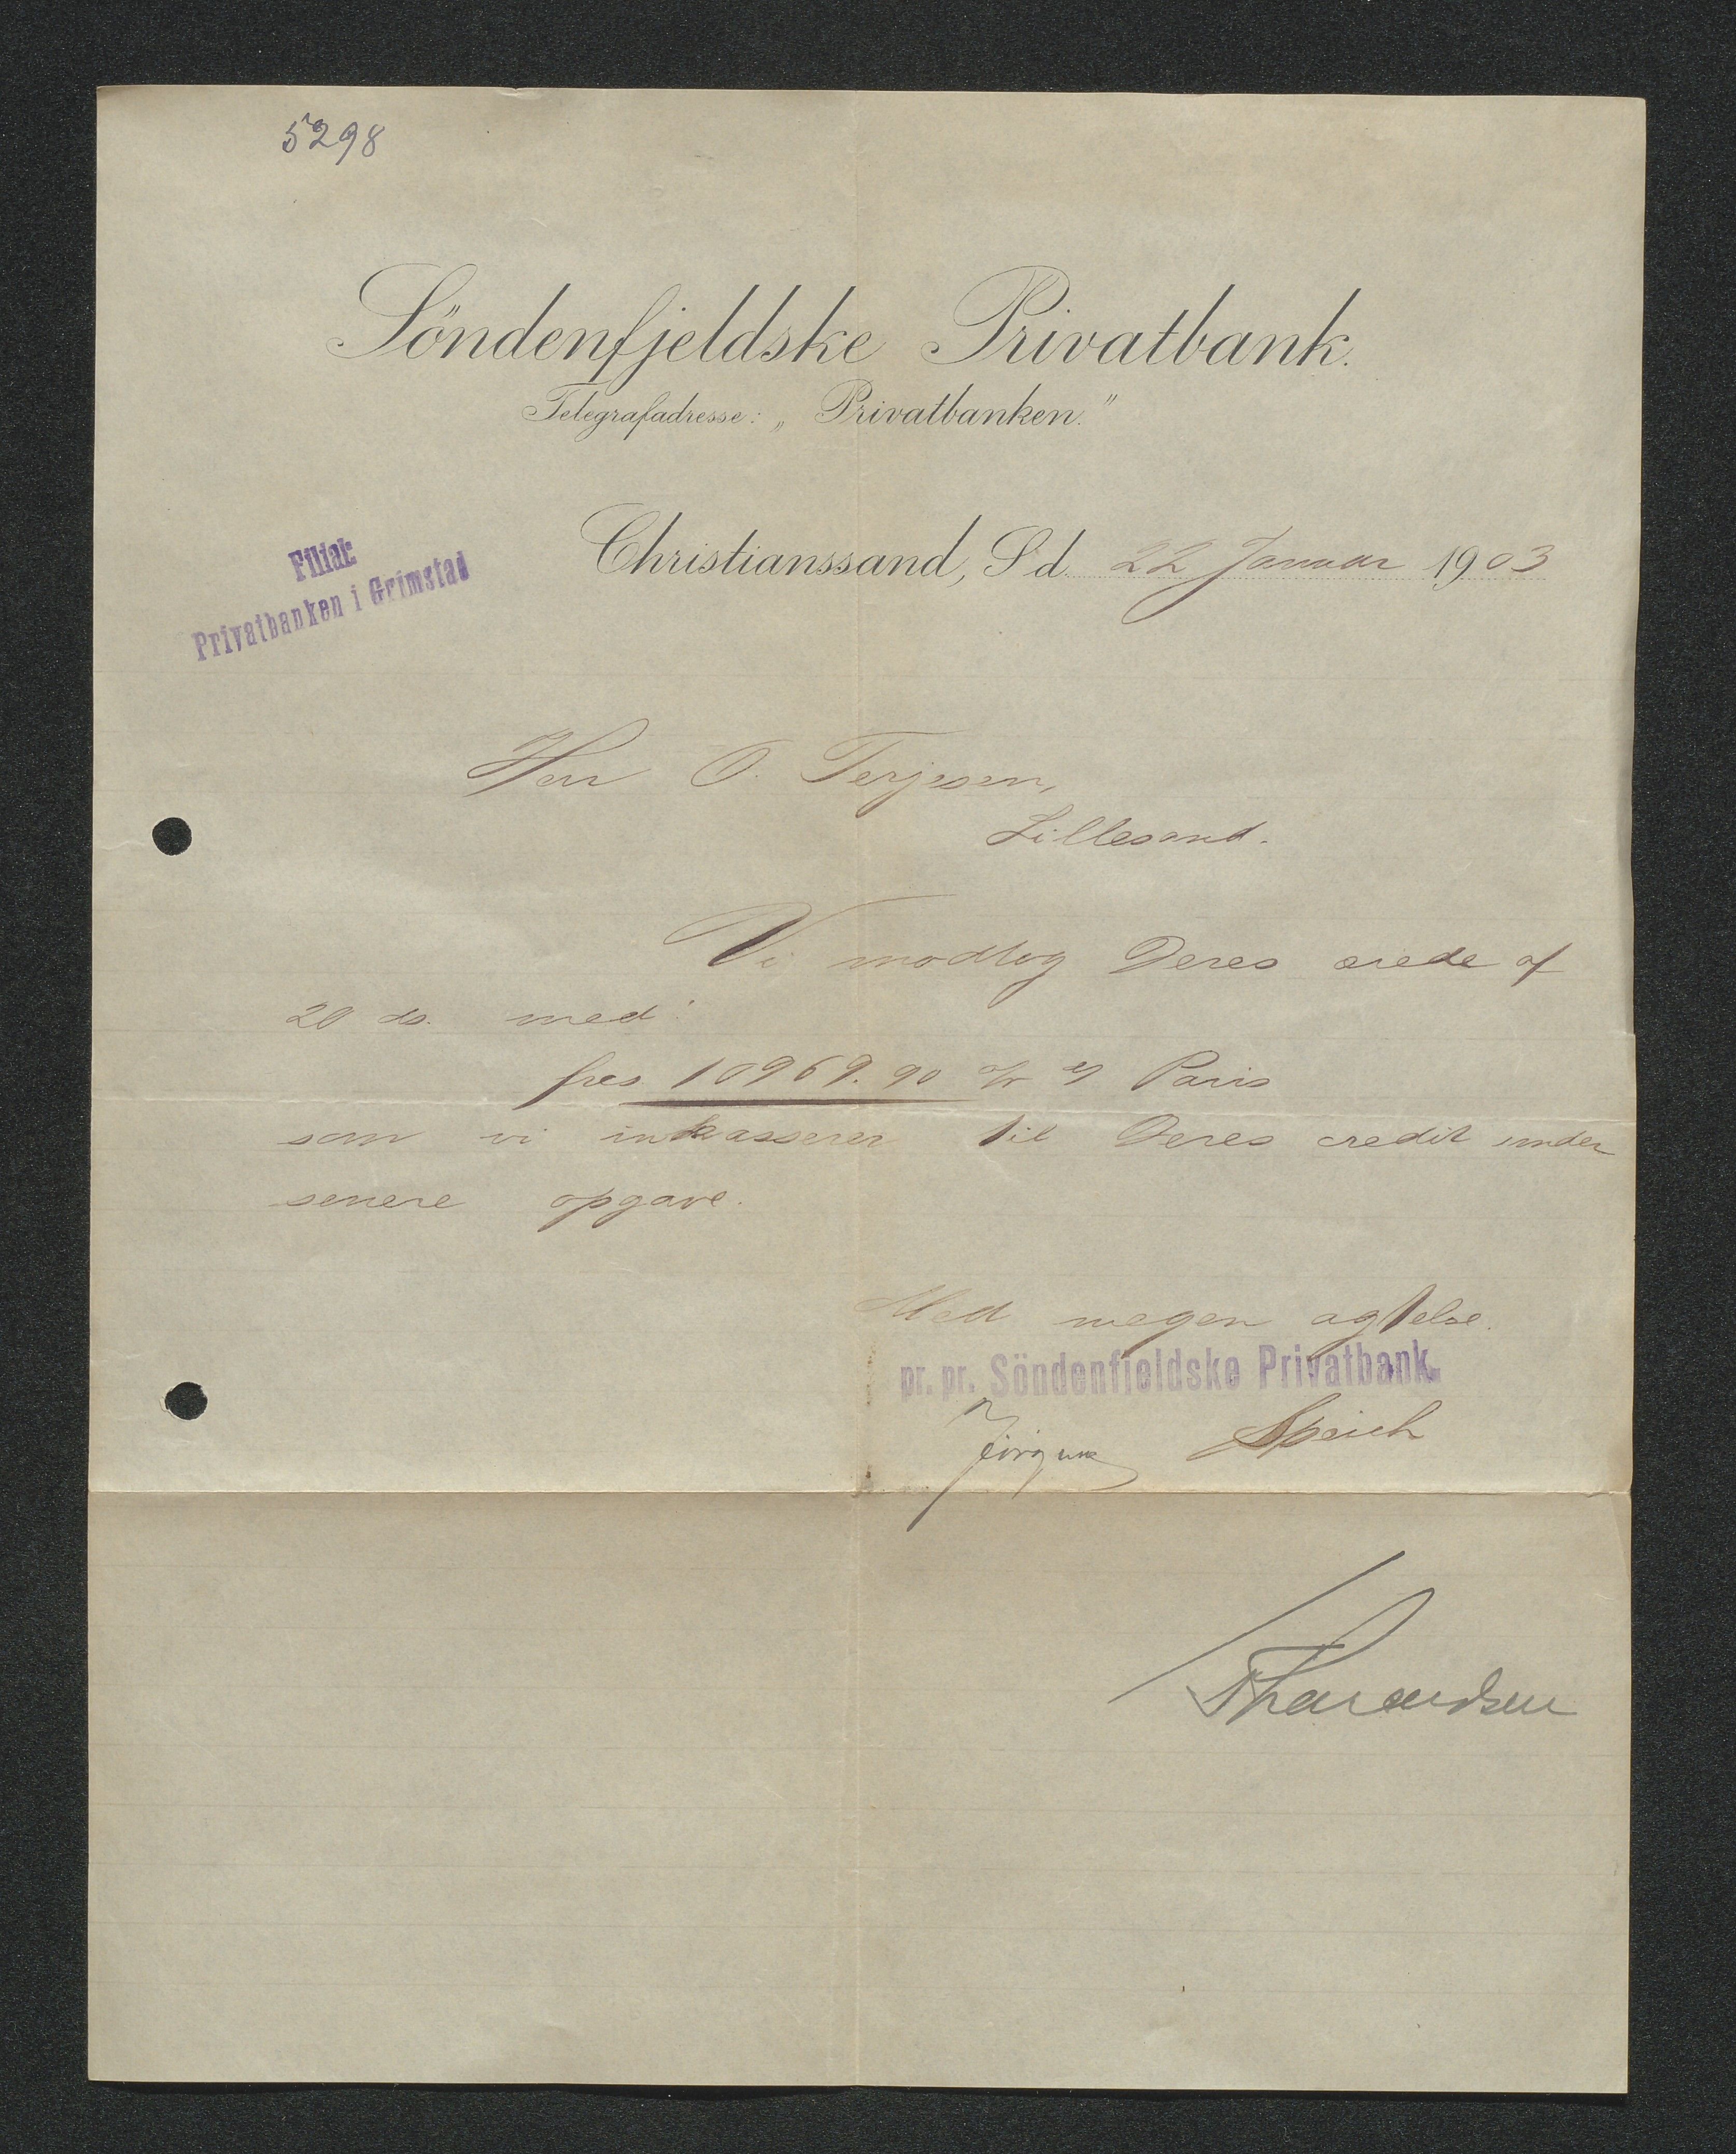 5298
Söndenfjeldske Privatbank.
Telegrafadresse: „Privatbanken."
Filial:
Privatbanken i Grimstad
Christianssand, S. d. 22 Januar 1903
Herr O. Terjesen,
Lillesand.
Vi modtog Deres ærede af
20 ds. med:
frcs 10969.90 Paris
som vi inkasserer til Deres credit under
senere opgave.
Med megen agtelse.
pr. pr. Söndenfjeldske Privatbank.